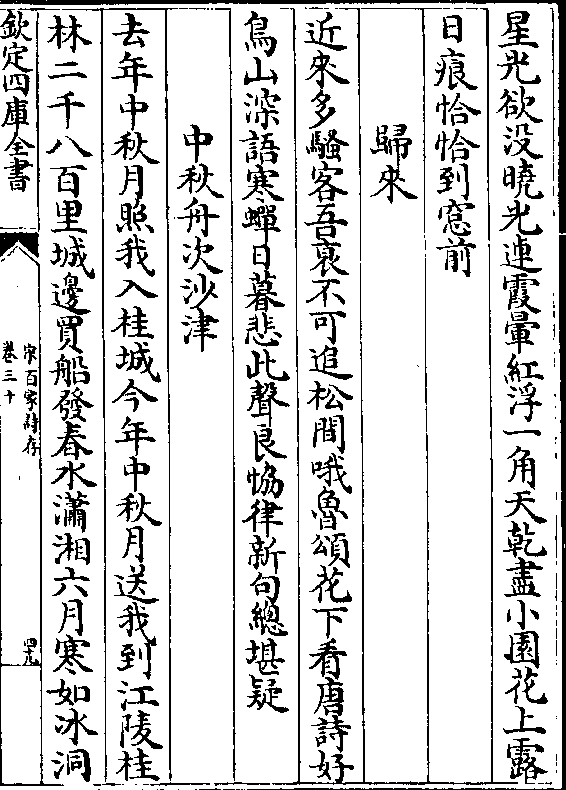 星光欲没曉光連霞暈紅浮一角天乾盡小園花上露
日痕恰恰到窓前
歸來
近來多騷客吾衰不可追松間哦魯頌花下看唐詩好
鳥山深語寒蟬日暮悲此聲良恊律新句總堪疑
中秋舟次沙津
去年中秋月照我入桂城今年中秋月送我到江陵桂
林二千八百里城邊買船發春水瀟湘六月寒如冰洞
欽定四庫全書
宋百家詩存
卷三十
四九